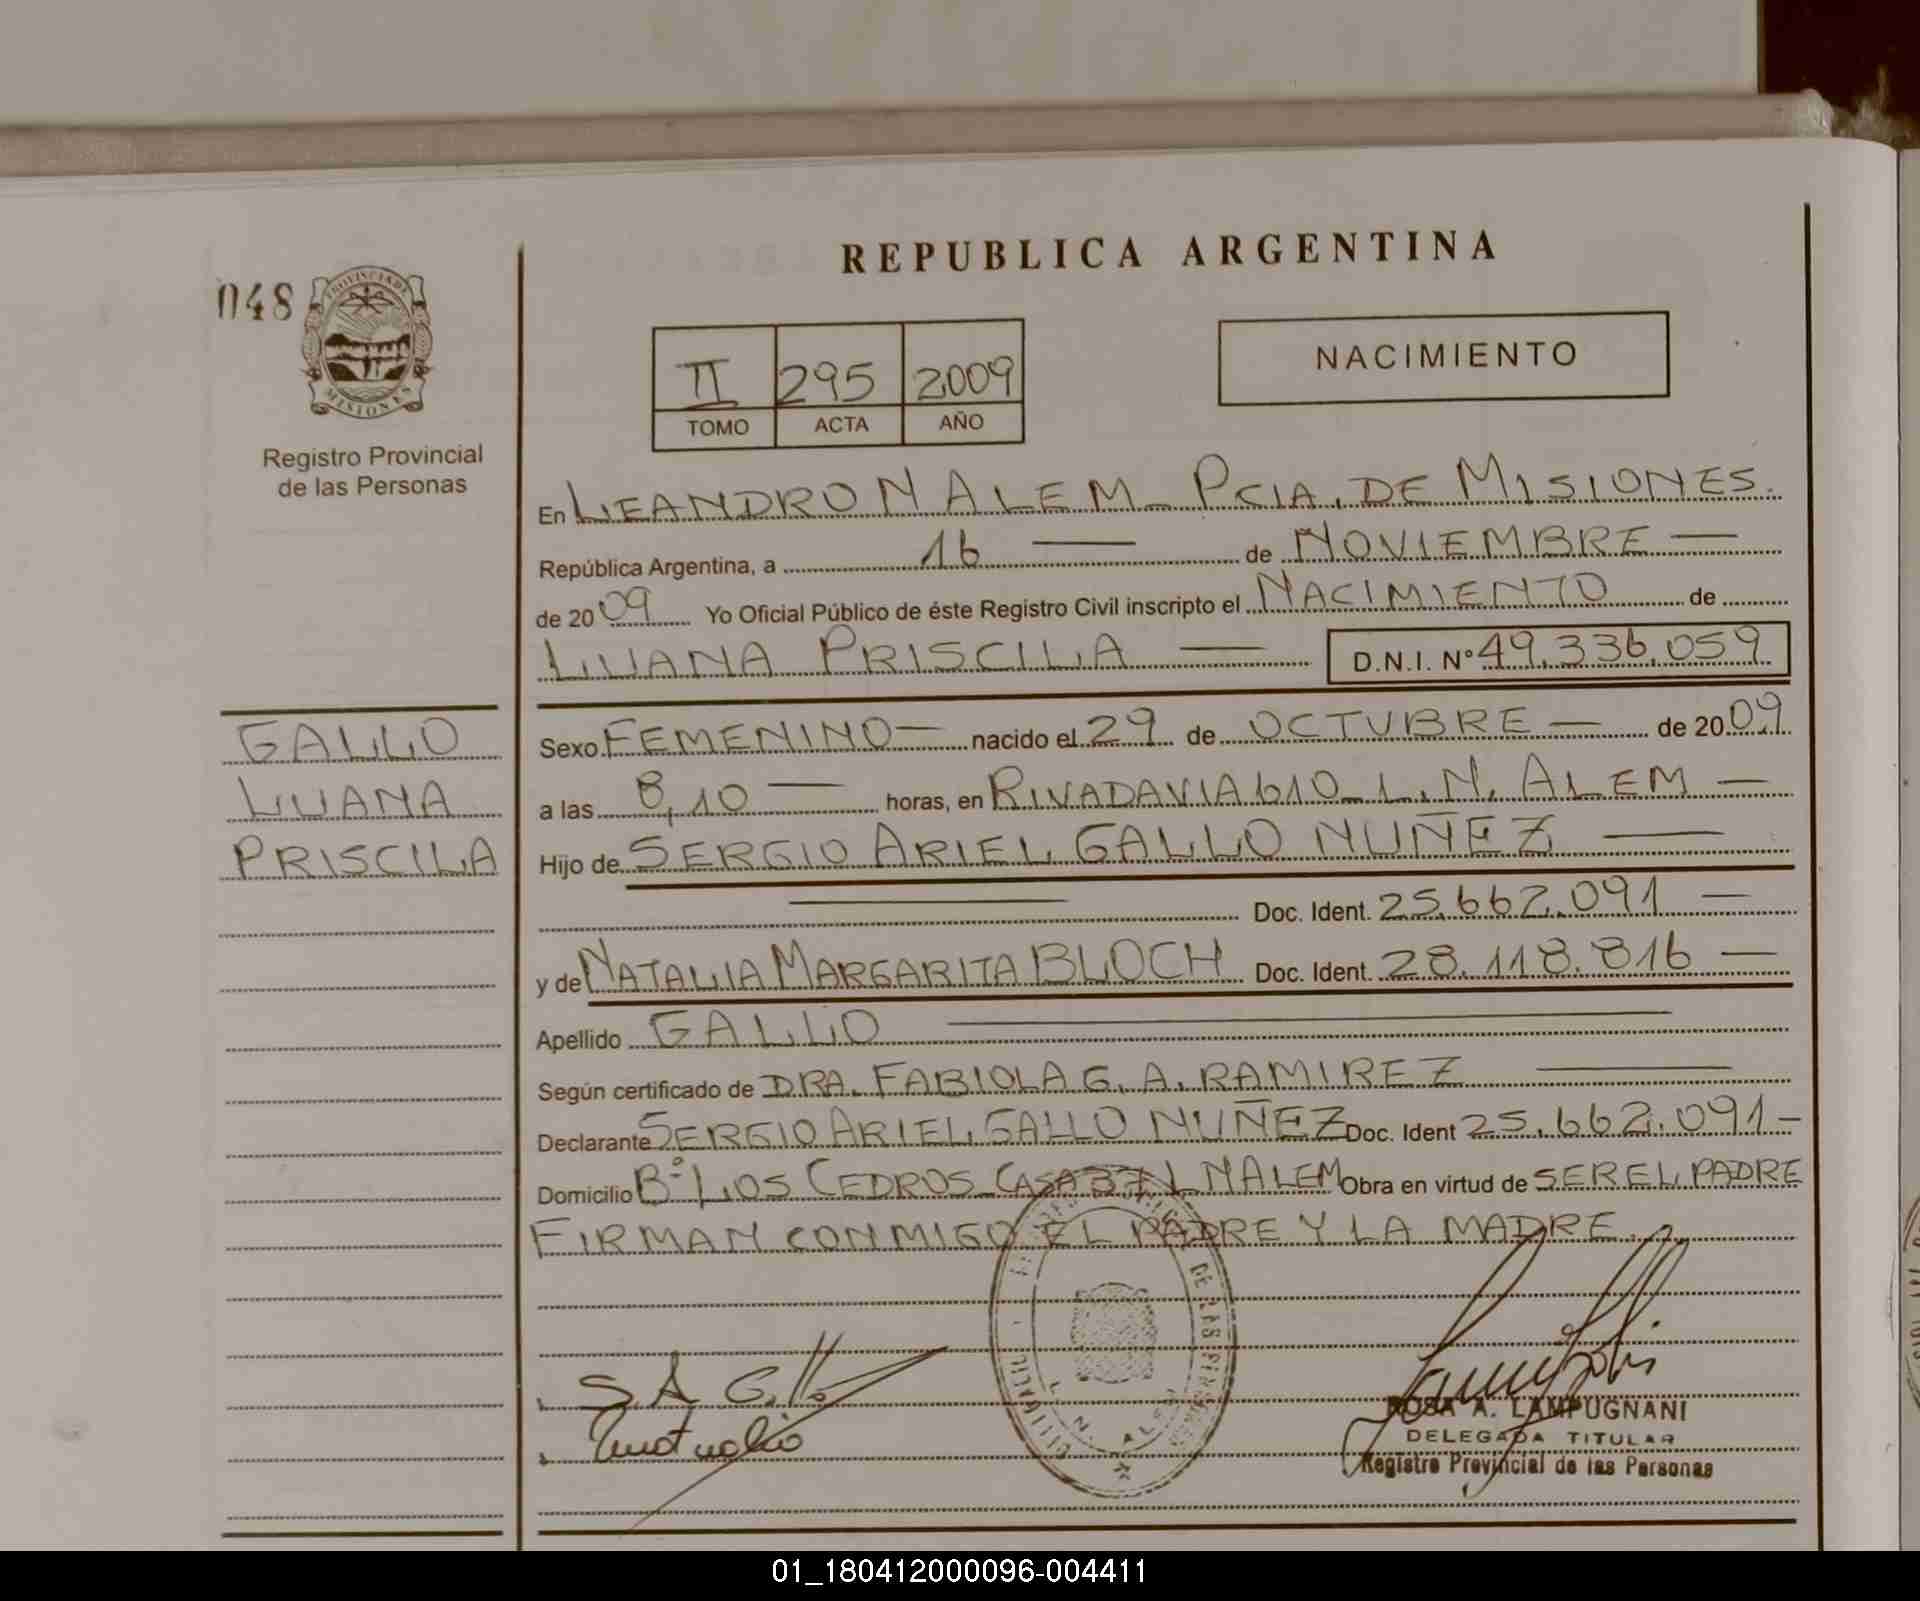 REPUBLICA ARGENTINA
048
PROVINCIA DE
MISIONES
Registro Provincial
de las Personas
NACIMIENTO
II 295 2009
TOMO ACTA AÑO
En LEANDRO N ALEM - PCIA. DE MISIONES.
República Argentina, a 16 — de NOVIEMBRE —
de 2009 Yo Oficial Público de éste Registro Civil inscripto el NACIMIENTO de
LUANA PRISCILA — D.N.I. Nº 49.336.059
GALLO
LUANA
PRISCILA
Sexo FEMENINO — nacido el 29 de OCTUBRE — de 2009
a las 8,10 — horas, en RIVADAVIA 610 - L. N. ALEM —
Hijo de SERGIO ARIEL GALLO NUÑEZ —
— Doc. Ident. 25.662.091 —
y de NATALIA MARGARITA BLOCH Doc. Ident. 28.118.816 —
Apellido GALLO —
Según certificado de DRA. FABIOLA G. A. RAMIREZ —
Declarante SERGIO ARIEL GALLO NUÑEZ Doc. Ident 25.662.091 -
Domicilio Bº LOS CEDROS - CASA 37 L N ALEM Obra en virtud de SER EL PADRE
FIRMAN CONMIGO EL PADRE Y LA MADRE.
DE LAS PERSONAS
L. N. ALEM
S. A. G.
ROSA A. LAMPUGNANI
DELEGADA TITULAR
Registro Provincial de las Personas
01_180412000096-004411